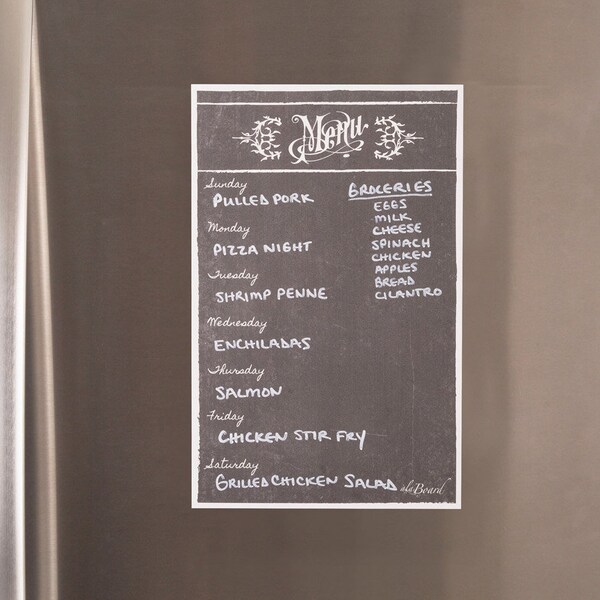 Menu
Sunday
PULLED PORK
Monday
PIZZA NIGHT
Tuesday
SHRIMP PENNE
Wednesday
ENCHILADAS
Thursday
SALMON
Friday
CHICKEN STIR FRY
Saturday
GRILLED CHICKEN SALAD
GROCERIES
EGGS
MILK
CHEESE
SPINACH
CHICKEN
APPLES
BREAD
CILANTRO
alaBoard